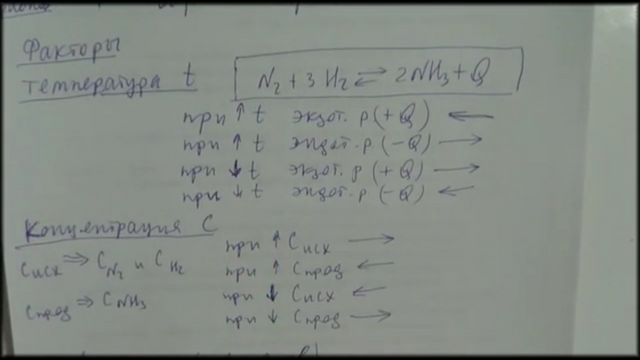 Факторы
температура t
N₂ + 3H₂ ⇄ 2NH₃ + Q
при ↑ t экзот. р (+Q) ←
при ↑ t эндот. р (−Q) →
при ↓ t экзот. р (+Q) →
при ↓ t эндот. р (−Q) ←
Концентрация C
Cисх ⇒ C_N₂ и C_H₂
Cпрод ⇒ C_NH₃
при ↑ Cисх →
при ↑ Cпрод ←
при ↓ Cисх ←
при ↓ Cпрод →